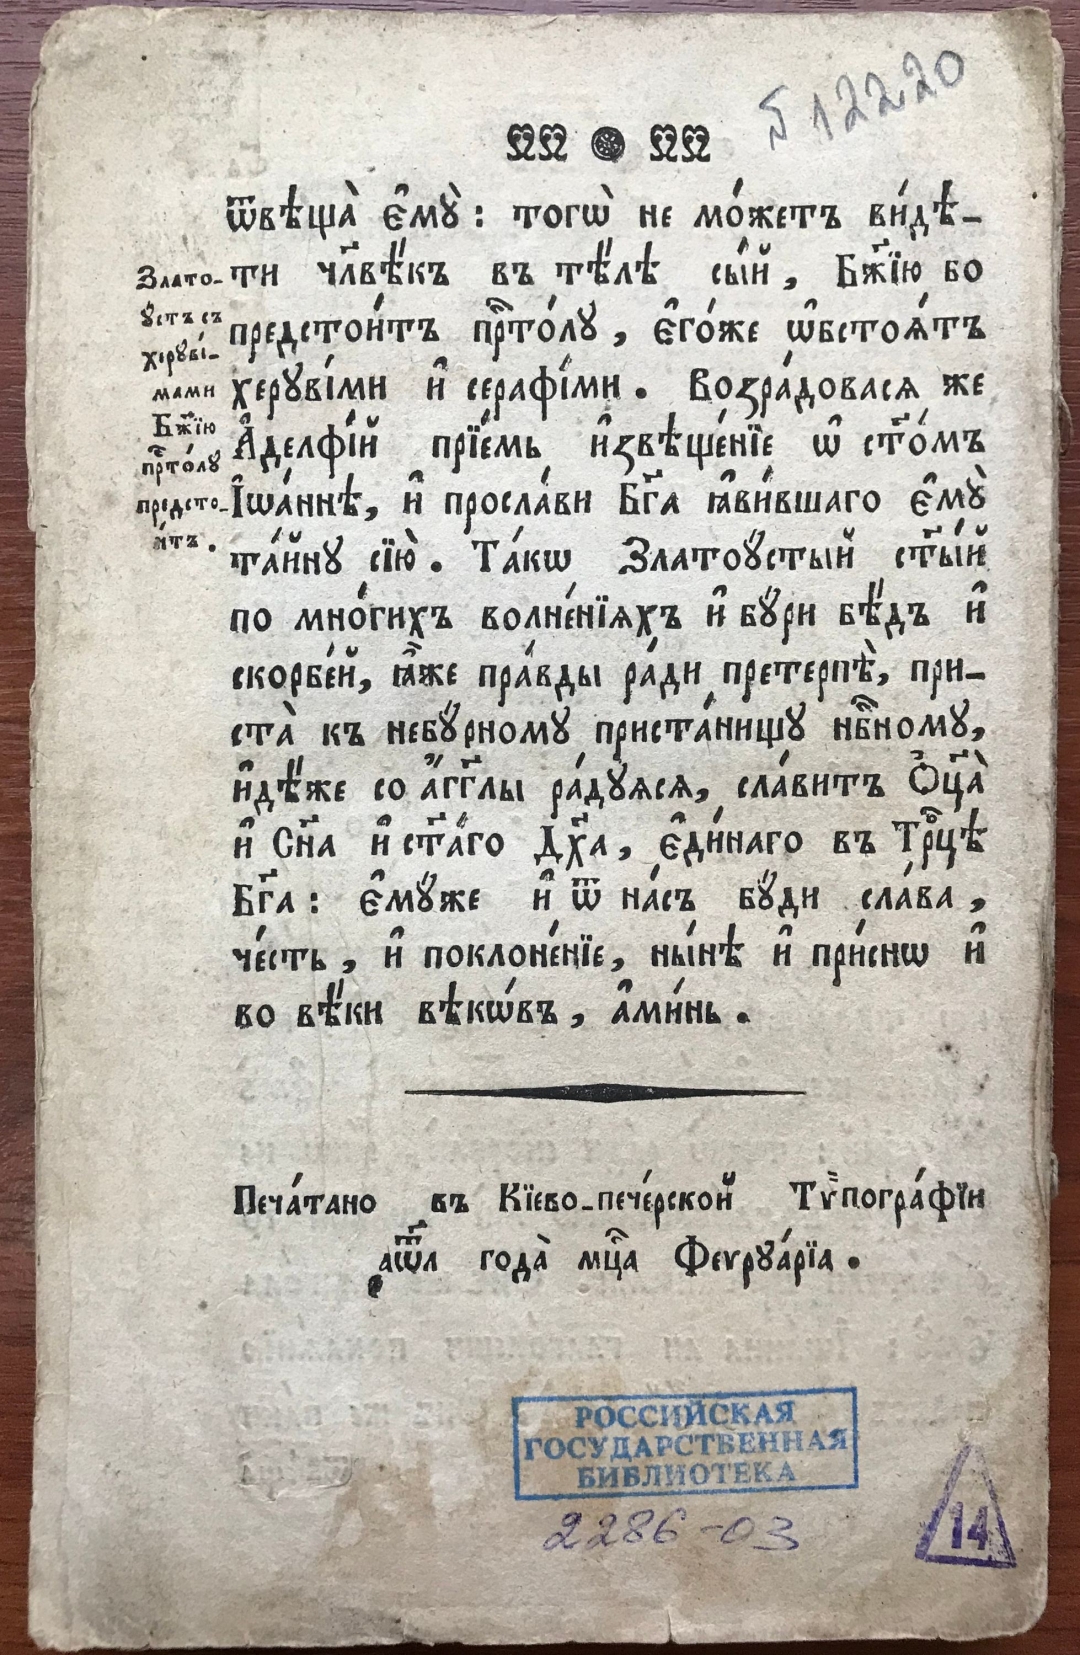 № 12220
ѿвѣща̀ є҆мꙋ̀: тогѡ̀ не мо́жетъ ви́дѣ-
ти чл҃вѣ́къ въ тѣ́лѣ сы́й, Бж҃їю бо
предстои́тъ прⷭ҇то́лꙋ, є҆го́же ѡ҆бстоѧ́тъ
херꙋві́ми и҆ серафі́ми. Возра́довасѧ же
А҆делфі́й прїе́мь и҆звѣще́нїе ѡ҆ ст҃о́мъ
І҆ѡа́ннѣ, и҆ просла́ви Бг҃а ꙗ҆ви́вшаго є҆мꙋ̀
та́йнꙋ сїю̀. Та́кѡ Златоꙋ́стый ст҃ы́й
по мно́гихъ волне́нїѧхъ и҆ бꙋ́ри бѣ́дъ и҆
скорбе́й, ꙗ҆̀же пра́вды ра́ди претерпѣ̀, при-
ста̀ къ небꙋ́рномꙋ приста́нищꙋ нбⷭ҇номꙋ,
и҆дѣ́же со а҆́гг҃лы ра́дꙋѧсѧ, сла́витъ Ѻ҆ц҃а̀
и҆ Сн҃а и҆ ст҃а́го Дх҃а, є҆ди́наго въ Трⷪ҇цѣ
Бг҃а: є҆мꙋ́же и҆ ѿ на́съ бꙋ́ди сла́ва,
че́сть, и҆ поклоне́нїе, ны́нѣ и҆ при́снѡ и҆
во вѣ́ки вѣкѡ́въ, а҆ми́нь.
Злато-
ꙋ́стъ съ
херꙋві́-
мами
Бж҃їю
прⷭ҇то́лꙋ
предсто-
и́тъ.
Печа́тано въ Кїево-пече́рской Тѷпогра́фїи
҂аѿл года̀ мцⷭ҇а Феѵрꙋа́рїа.
РОССИЙСКАЯ
ГОСУДАРСТВЕННАЯ
БИБЛИОТЕКА
2286-03
14